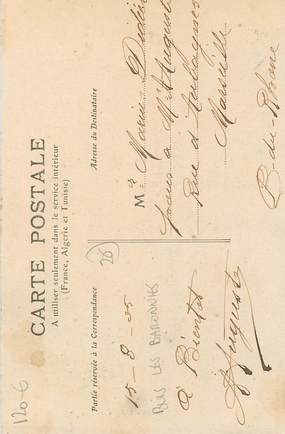 CARTE POSTALE
A utiliser seulement dans le service intérieur
(France, Algérie et Tunisie)
Partie réservée à la Correspondance
Adresse du Destinataire
15-8-05
BUIS LES BARONNIES
à Bientôt
Auguste
26
Mr Marius Didier
à Mr Auguste
Rue d'Aubagne
Marseille
B du Rhône
1206